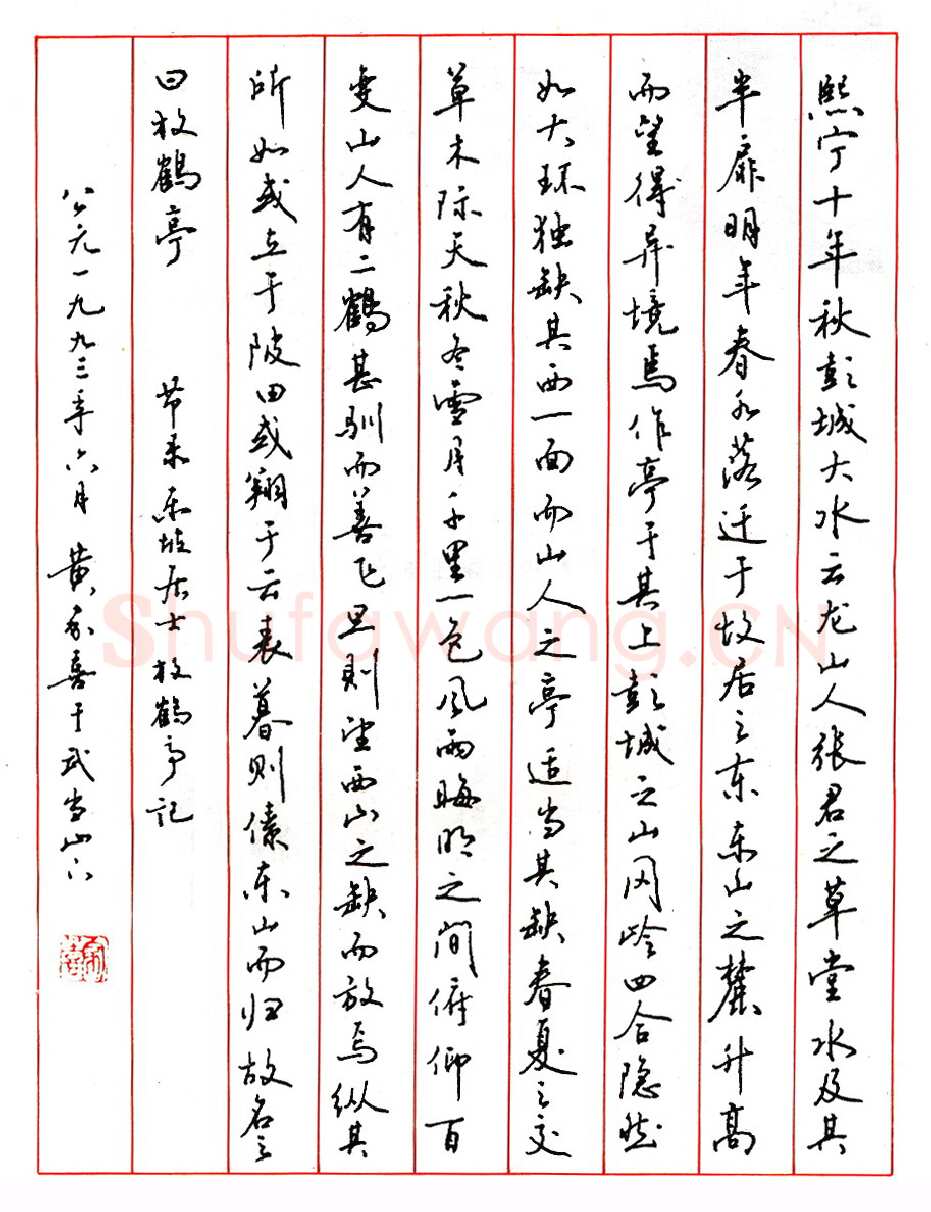 熙宁十年秋彭城大水云龙山人张君之草堂水及其
半扉明年春水落迁于故居之东东山之麓升高
而望得异境焉作亭于其上彭城之山冈岭四合隐然
如大环独缺其西一面而山人之亭适当其缺春夏之交
草木际天秋冬雪月千里一色风雨晦明之间俯仰百
变山人有二鹤甚驯而善飞旦则望西山之缺而放焉纵其
所如或立于陂田或翔于云表暮则傃东山而归故名之
曰放鹤亭 节录东坡居士放鹤亭记
公元一九九三年六月 黄家喜于武当山下
Shufawang.CN